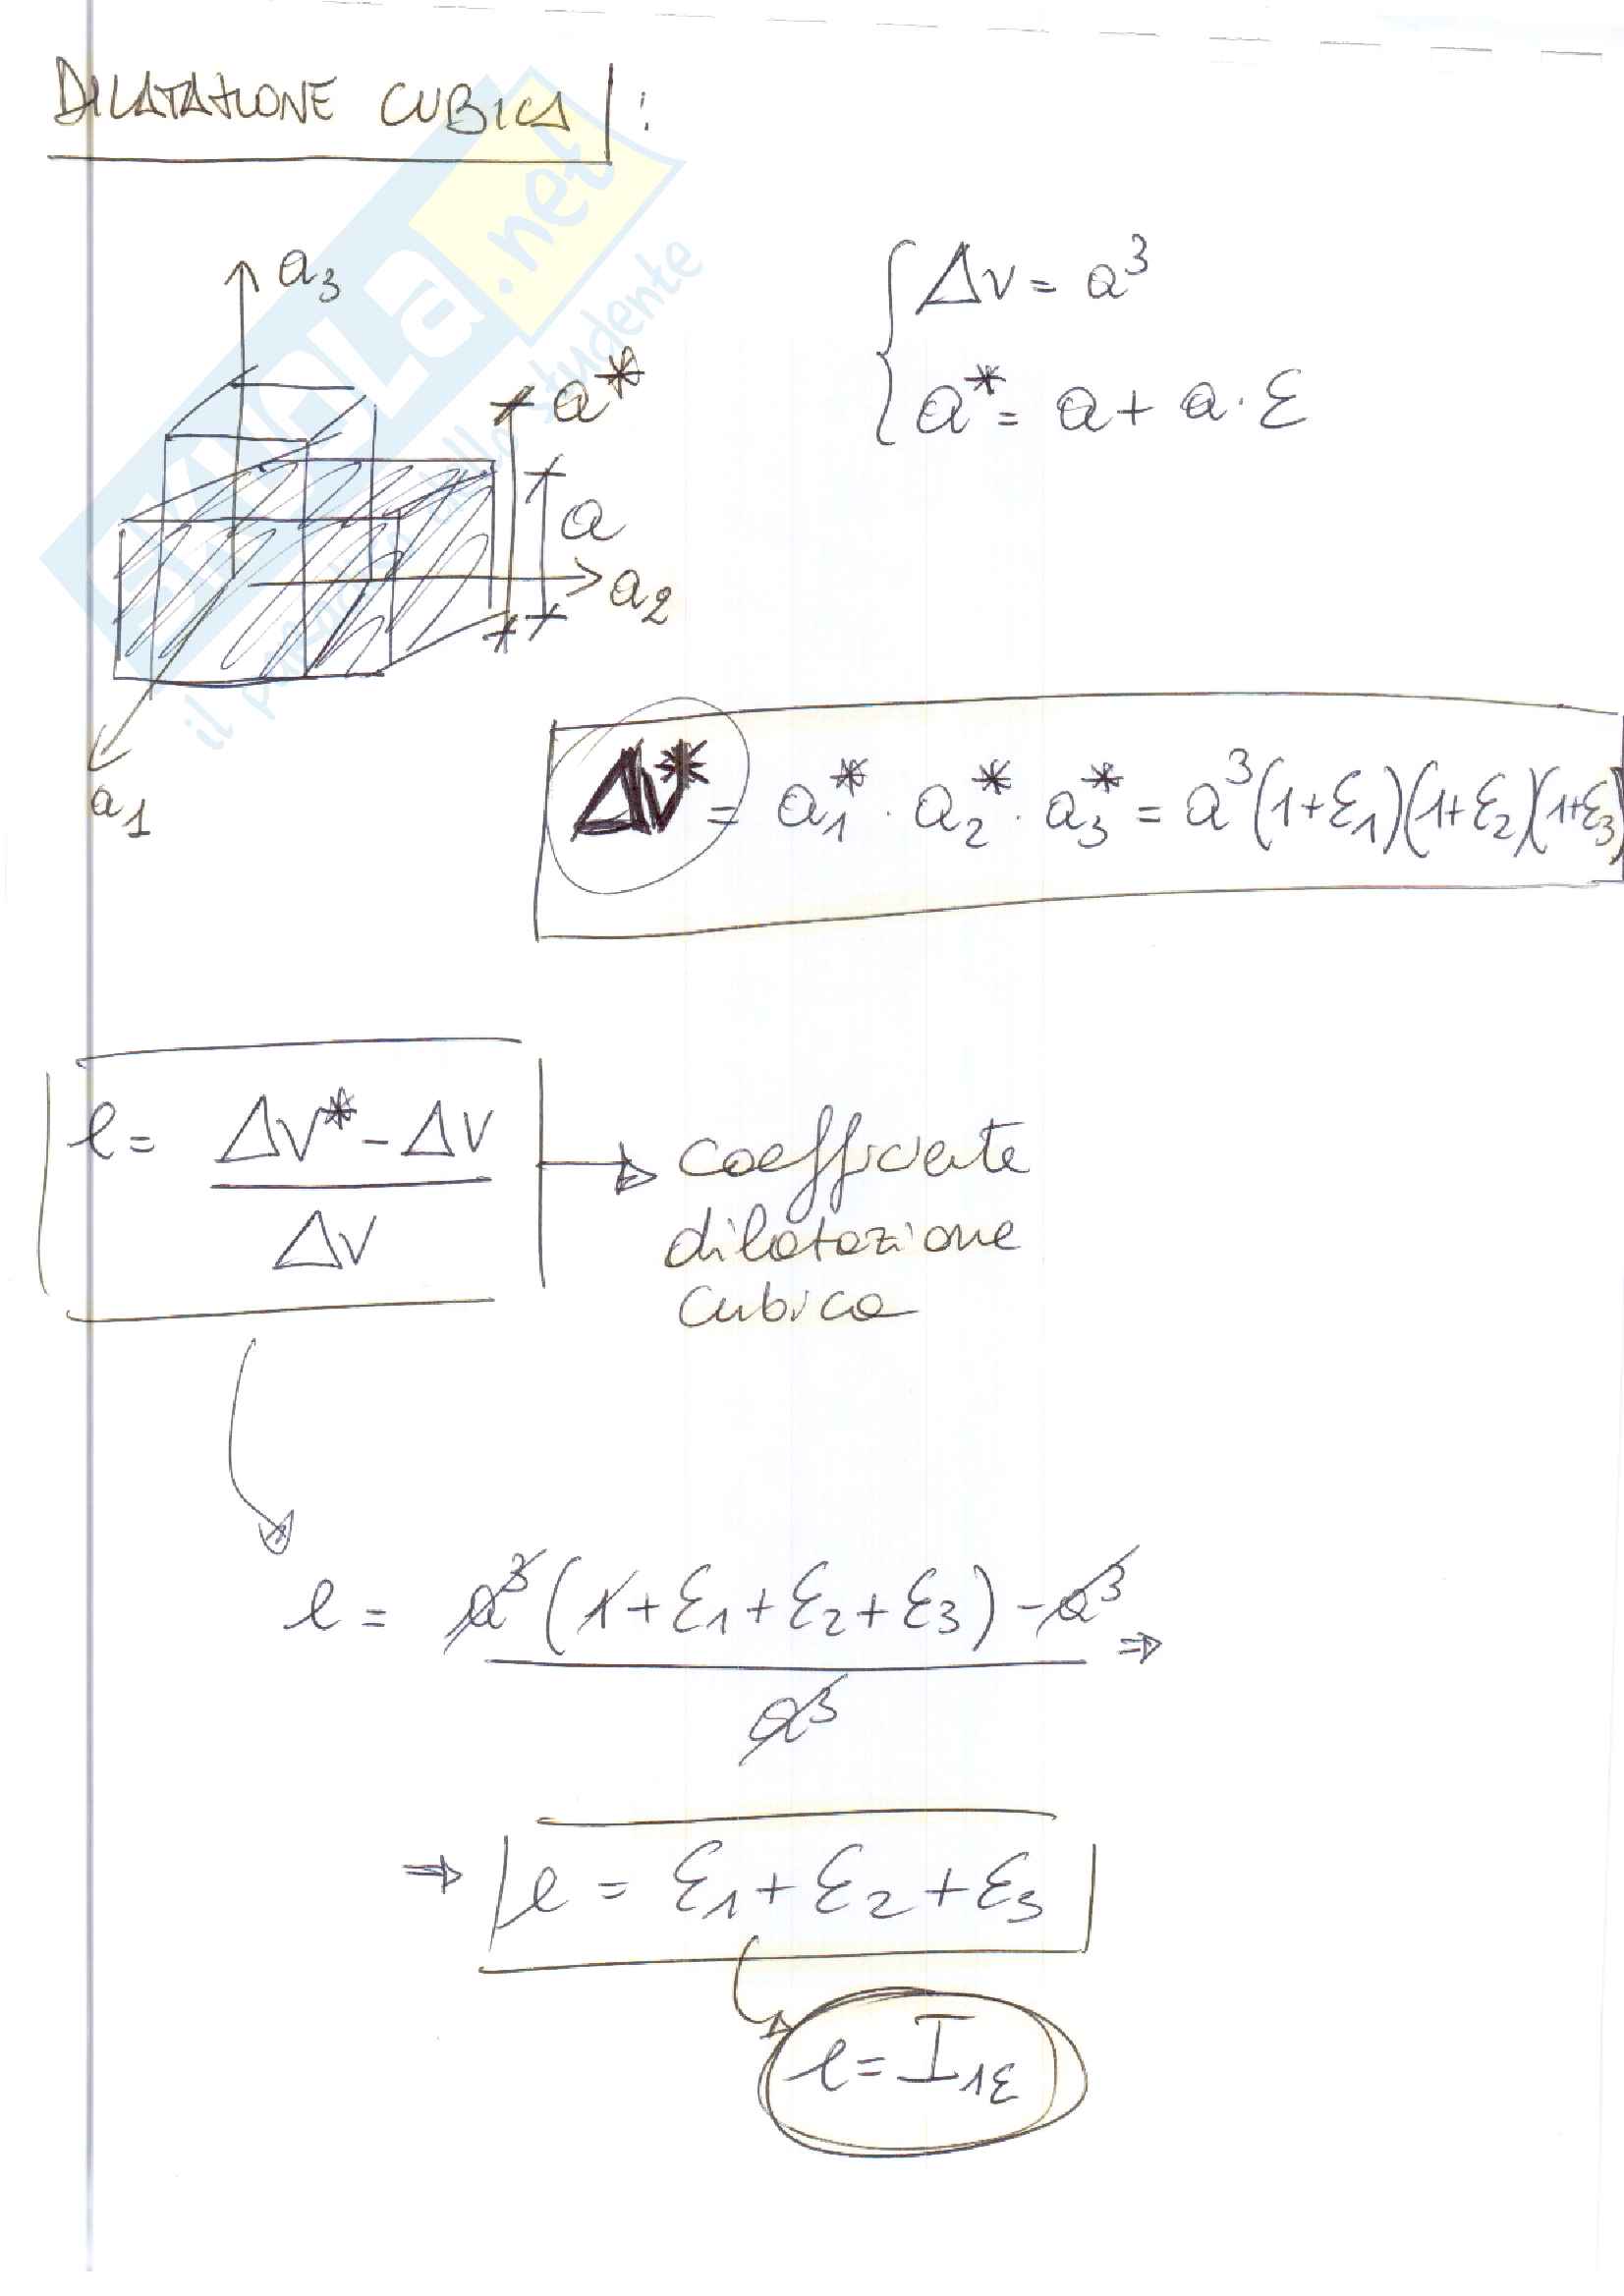 DILATAZIONE CUBICA :
a₃
ΔV = a³
a* = a + a · ε
a*
a
a₂
a₁
ΔV* = a₁* · a₂* · a₃* = a³(1+ε₁)(1+ε₂)(1+ε₃)
e = (ΔV* - ΔV) / ΔV → coefficiente
dilatazione
cubica
e = (a³(1+ε₁+ε₂+ε₃) - a³) / a³ ⇒
⇒ e = ε₁+ε₂+ε₃
e = I₁ε
SKUOLA.net